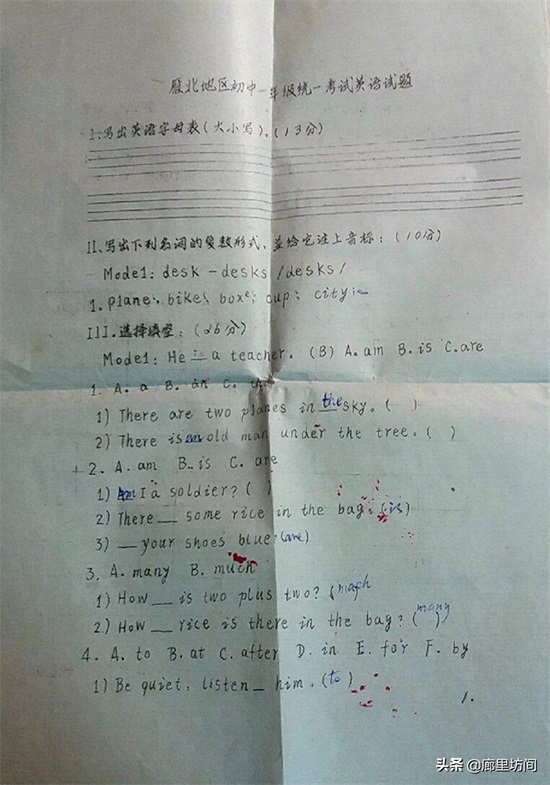 雁北地区初中一年级统一考试英语试题
I.写出英语字母表(大小写)。(13分)
II、写出下列名词的复数形式,并给它注上音标:(10分)
Model: desk - desks /desks/
1. plane, bike, box, cup, city
III.选择填空:(26分)
Model: He is a teacher. (B) A.am B.is C.are
1. A. a B. an C. the
1) There are two planes in the sky. ( )
2) There is an old man under the tree. ( )
2. A.am B.is C. are
1) Am I a soldier? ( )
2) There __ some rice in the bag. (is)
3) __ your shoes blue (are)
3. A.many B. much
1) How __ is two plus two? (
2) How __ rice is there in the bag? (many)
4. A. to B.at C.after D. in E. for F. by
1) Be quiet, listen _ him. (to)
1.
头条 @廊里坊间